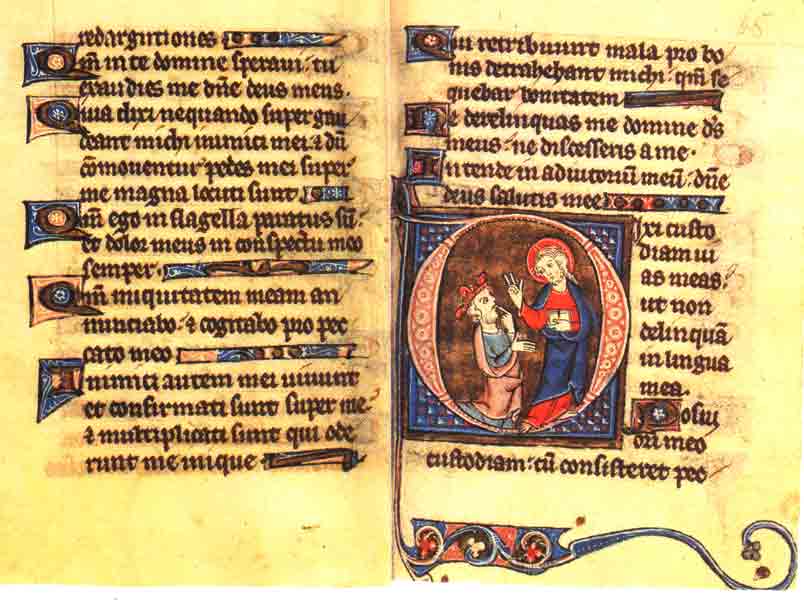 redargutiones
Qm̄ in te domine speraui: tu
exaudies me dn̄e deus meus.
Quia dixi nequando supergau
deant michi inimici mei: & dū
cōmouentur pedes mei super
me magna locuti sunt
Qm̄ ego in flagella paratus sū:
et dolor meus in conspectu meo
semper.
Qm̄ iniquitatem meam an
nunciabo: & cogitabo pro pec
cato meo
Inimici autem mei uiuunt
et confirmati sunt super me:
& multiplicati sunt qui ode
runt me inique
65
Qui retribuunt mala pro bo
nis detrahebant michi: qm̄ se
quebar bonitatem
Ne derelinquas me domine ds̄
meus: ne discesseris a me.
Intende in adiutoriū meū: dn̄e
deus salutis mee
Dixi custo
diam ui
as meas:
ut non
delinquā
in lingua
mea.
Posui
ori meo
custodiam: cū consisteret pec